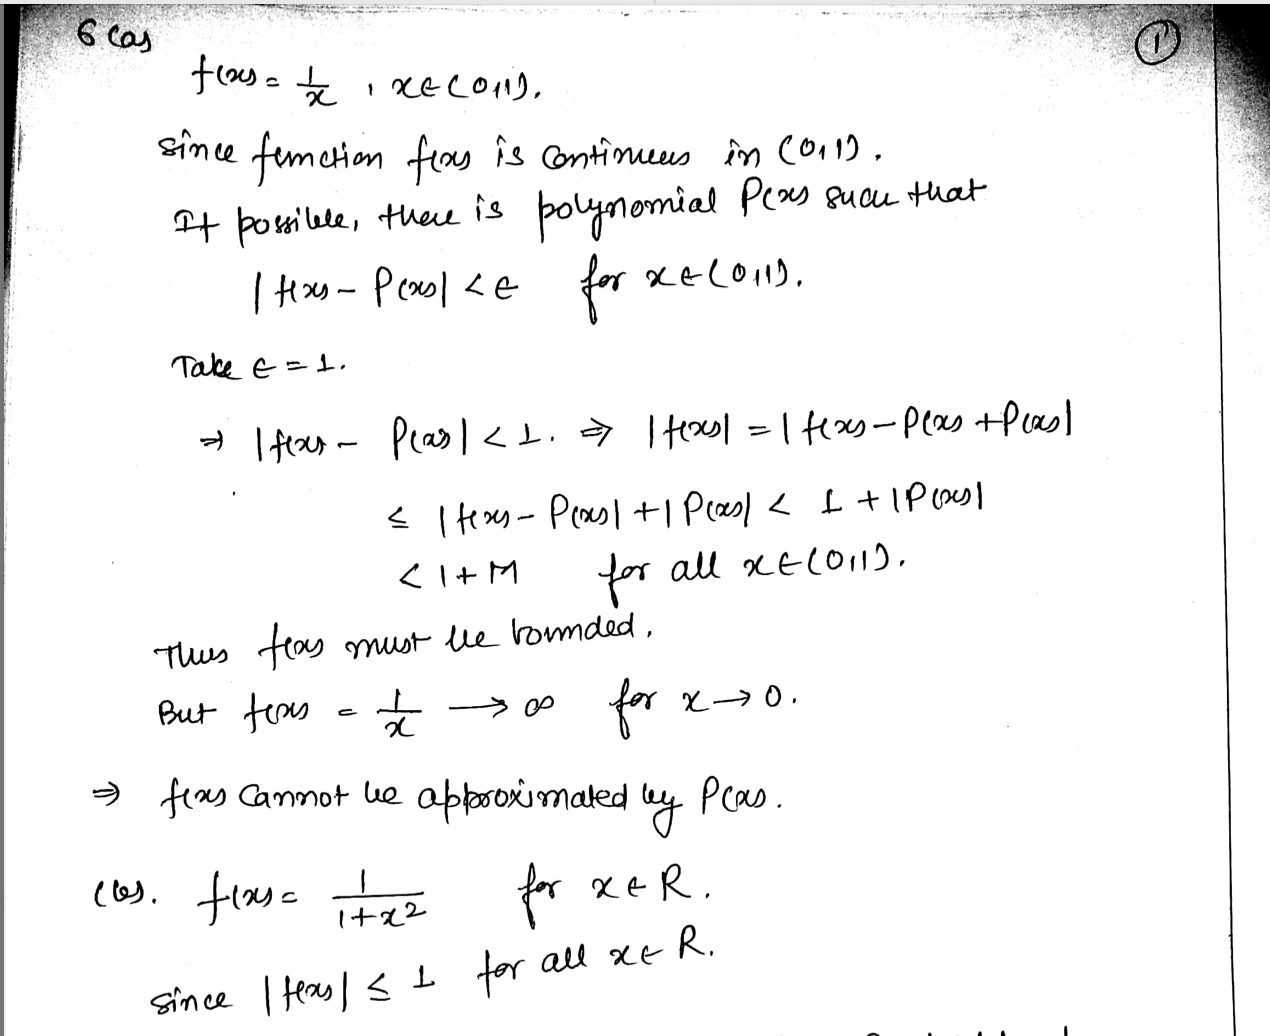 6 (a)
①
f(x) = 1/x , x∈(0,1).
since function f(x) is continuous in (0,1).
If possible, there is polynomial P(x) such that
|f(x) - P(x)| < ϵ for x∈(0,1).
Take ϵ = 1.
⇒ |f(x) - P(x)| < 1. ⇒ |f(x)| = |f(x) - P(x) + P(x)|
≤ |f(x) - P(x)| + |P(x)| < 1 + |P(x)|
< 1 + M for all x∈(0,1).
Thus f(x) must be bounded.
But f(x) = 1/x → ∞ for x → 0.
⇒ f(x) cannot be approximated by P(x).
(b). f(x) = 1/(1+x²) for x∈R.
since |f(x)| ≤ 1 for all x∈R.